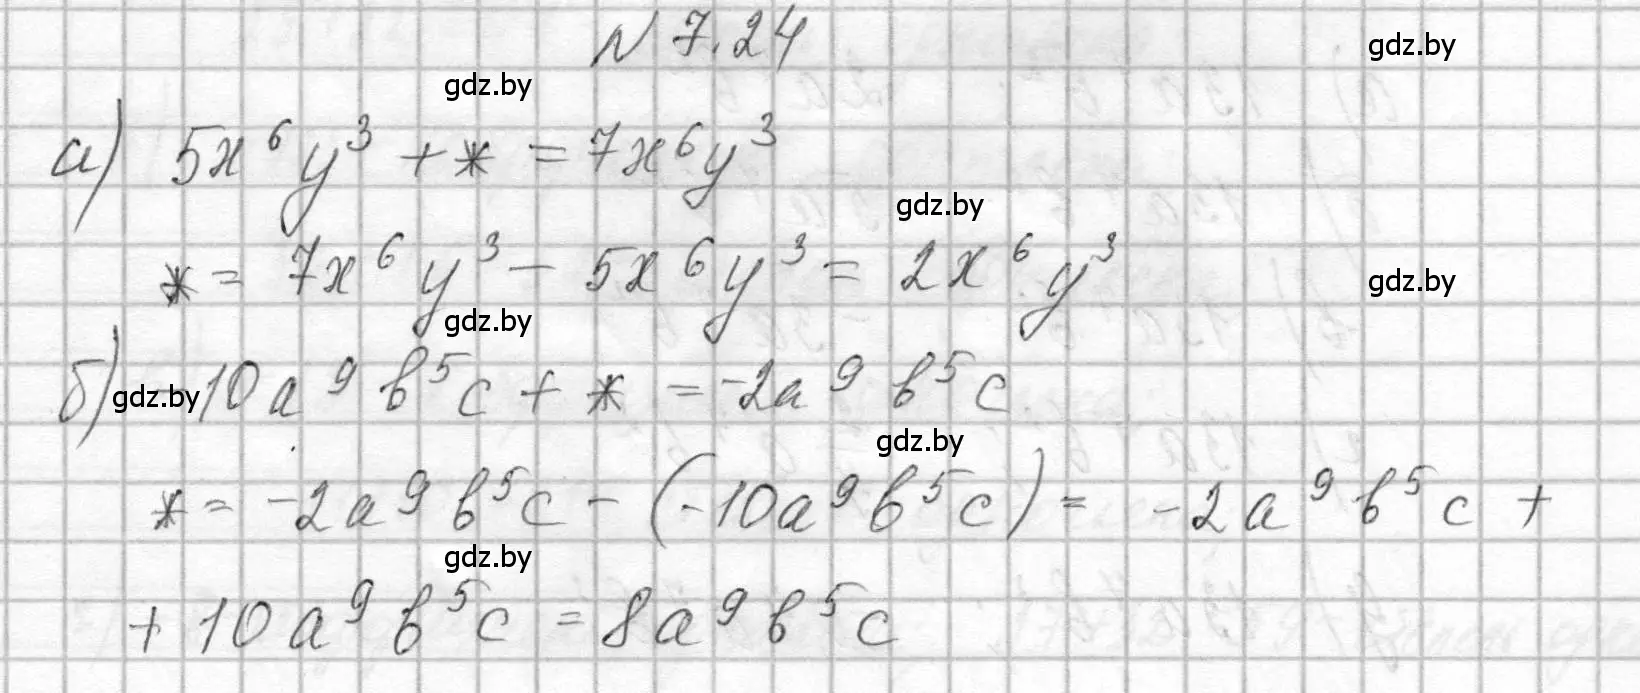 № 7.24
gdz.by
gdz.by
а) 5x⁶y³ + * = 7x⁶y³
gdz.by
* = 7x⁶y³ - 5x⁶y³ = 2x⁶y³
gdz.by
gdz.by
б) -10a⁹b⁵c + * = -2a⁹b⁵c
gdz.by
gdz.by
* = -2a⁹b⁵c - (-10a⁹b⁵c) = -2a⁹b⁵c +
gdz.by
+ 10a⁹b⁵c = 8a⁹b⁵c